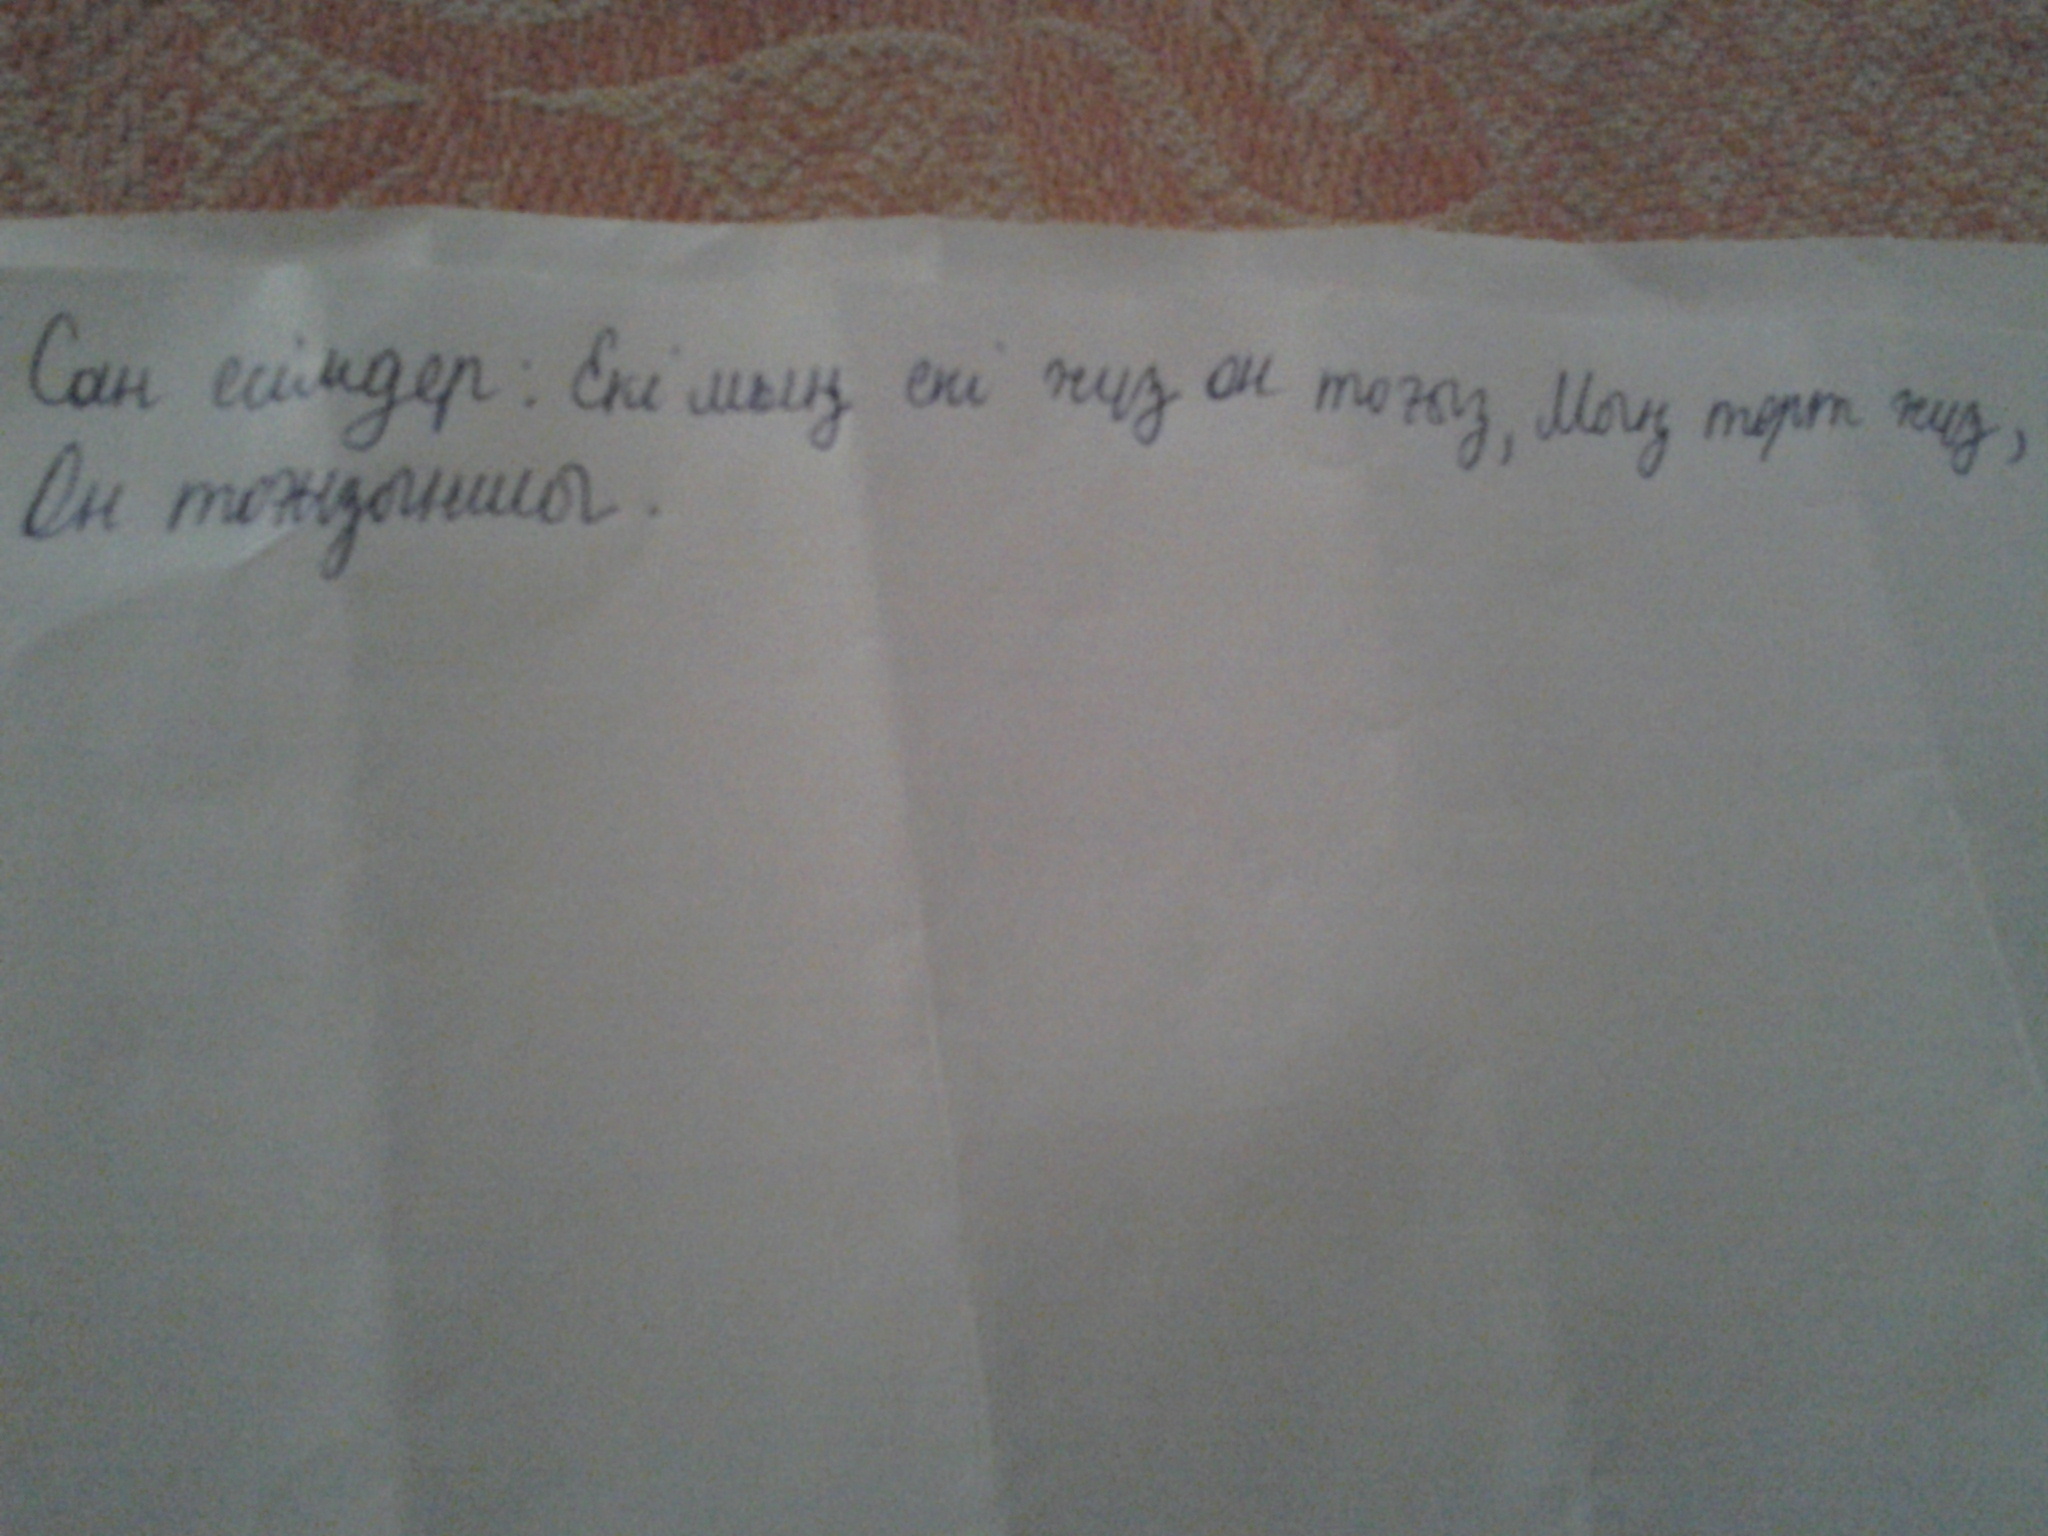 Сан есімдер: Екі мың екі жүз он тоғыз, Мың төрт жүз,
Он тоғызыншы.